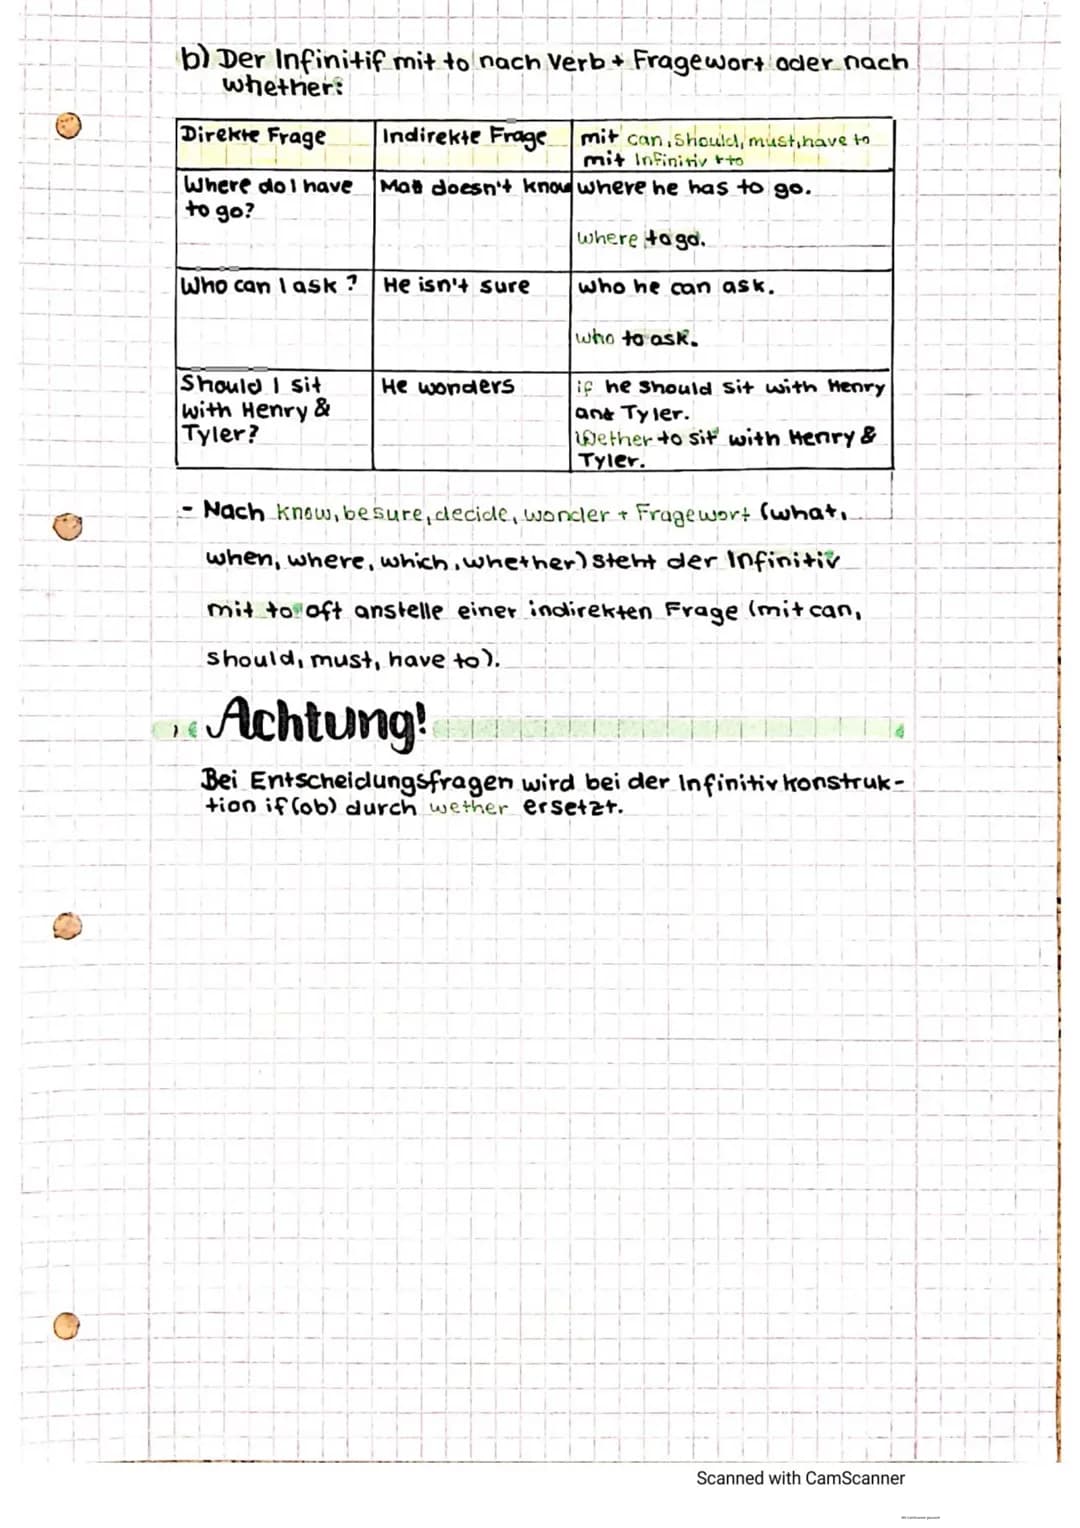 b) Der Infinitif mit to nach Verb + Fragewort oder nach
whether:
Direkte Frage
Indirekte Frage
mit can, should, must, have to
mit Infinitiv + to
Where do I have
to go?
Matt doesn't know
where he has to go.
where to go.
Who can I ask?
He isn't sure
who he can ask.
who to ask.
Should I sit
with Henry &
Tyler?
He wonders
if he should sit with Henry
and Tyler.
Wether to sit with Henry &
Tyler.
- Nach know, be sure, decide, wonder + Fragewort (what,
when, where, which, whether) steht der Infinitiv
mit to oft anstelle einer indirekten Frage (mit can,
should, must, have to).
Achtung!
Bei Entscheidungsfragen wird bei der Infinitivkonstruk-
tion if (ob) durch wether ersetzt.
Scanned with CamScanner